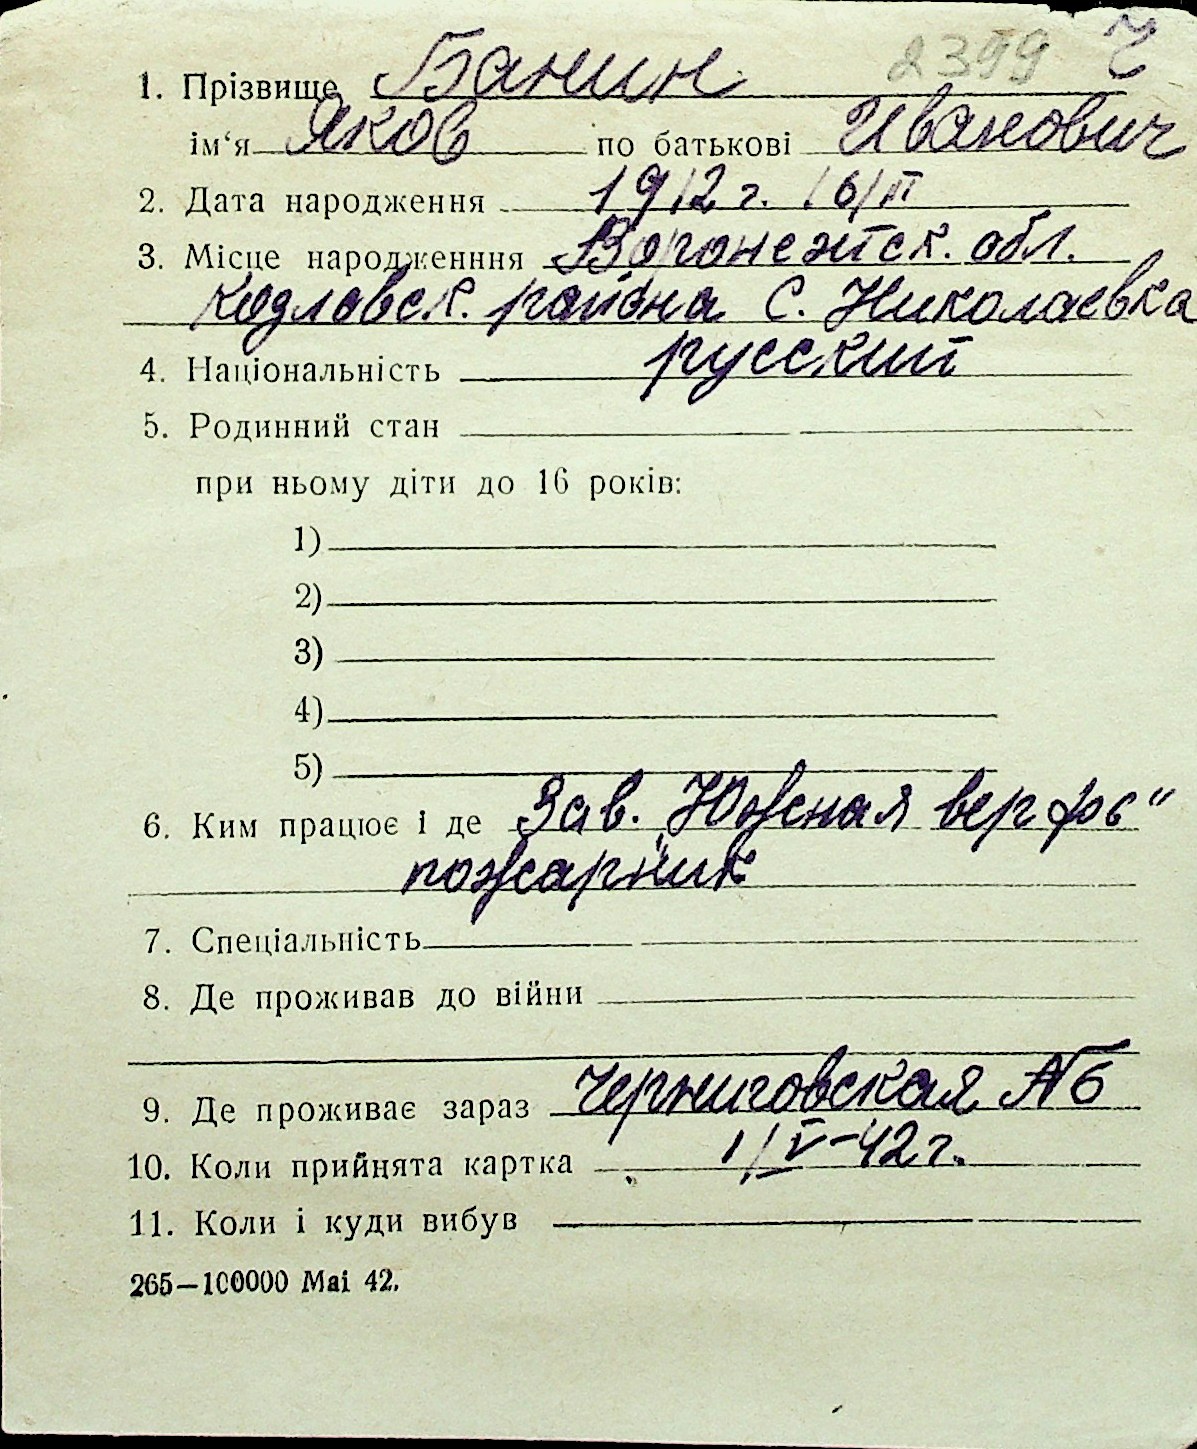 2399 Ч
1. Прізвище Банин
ім‘я Яков по батькові Иванович
2. Дата народження 1912 г. 16/II
3. Місце народженння Воронежск. обл.
Козловск. района С. Николаевка
4. Національність русский
5. Родинний стан
при ньому діти до 16 років:
1)
2)
3)
4)
5)
6. Ким працює і де Зав. „Южная верфь“
пожарник
7. Спеціальність
8. Де проживав до війни
9. Де проживає зараз Черниговская №6
10. Коли прийнята картка 1/V-42 г.
11. Коли і куди вибув
265—100000 Mai 42.